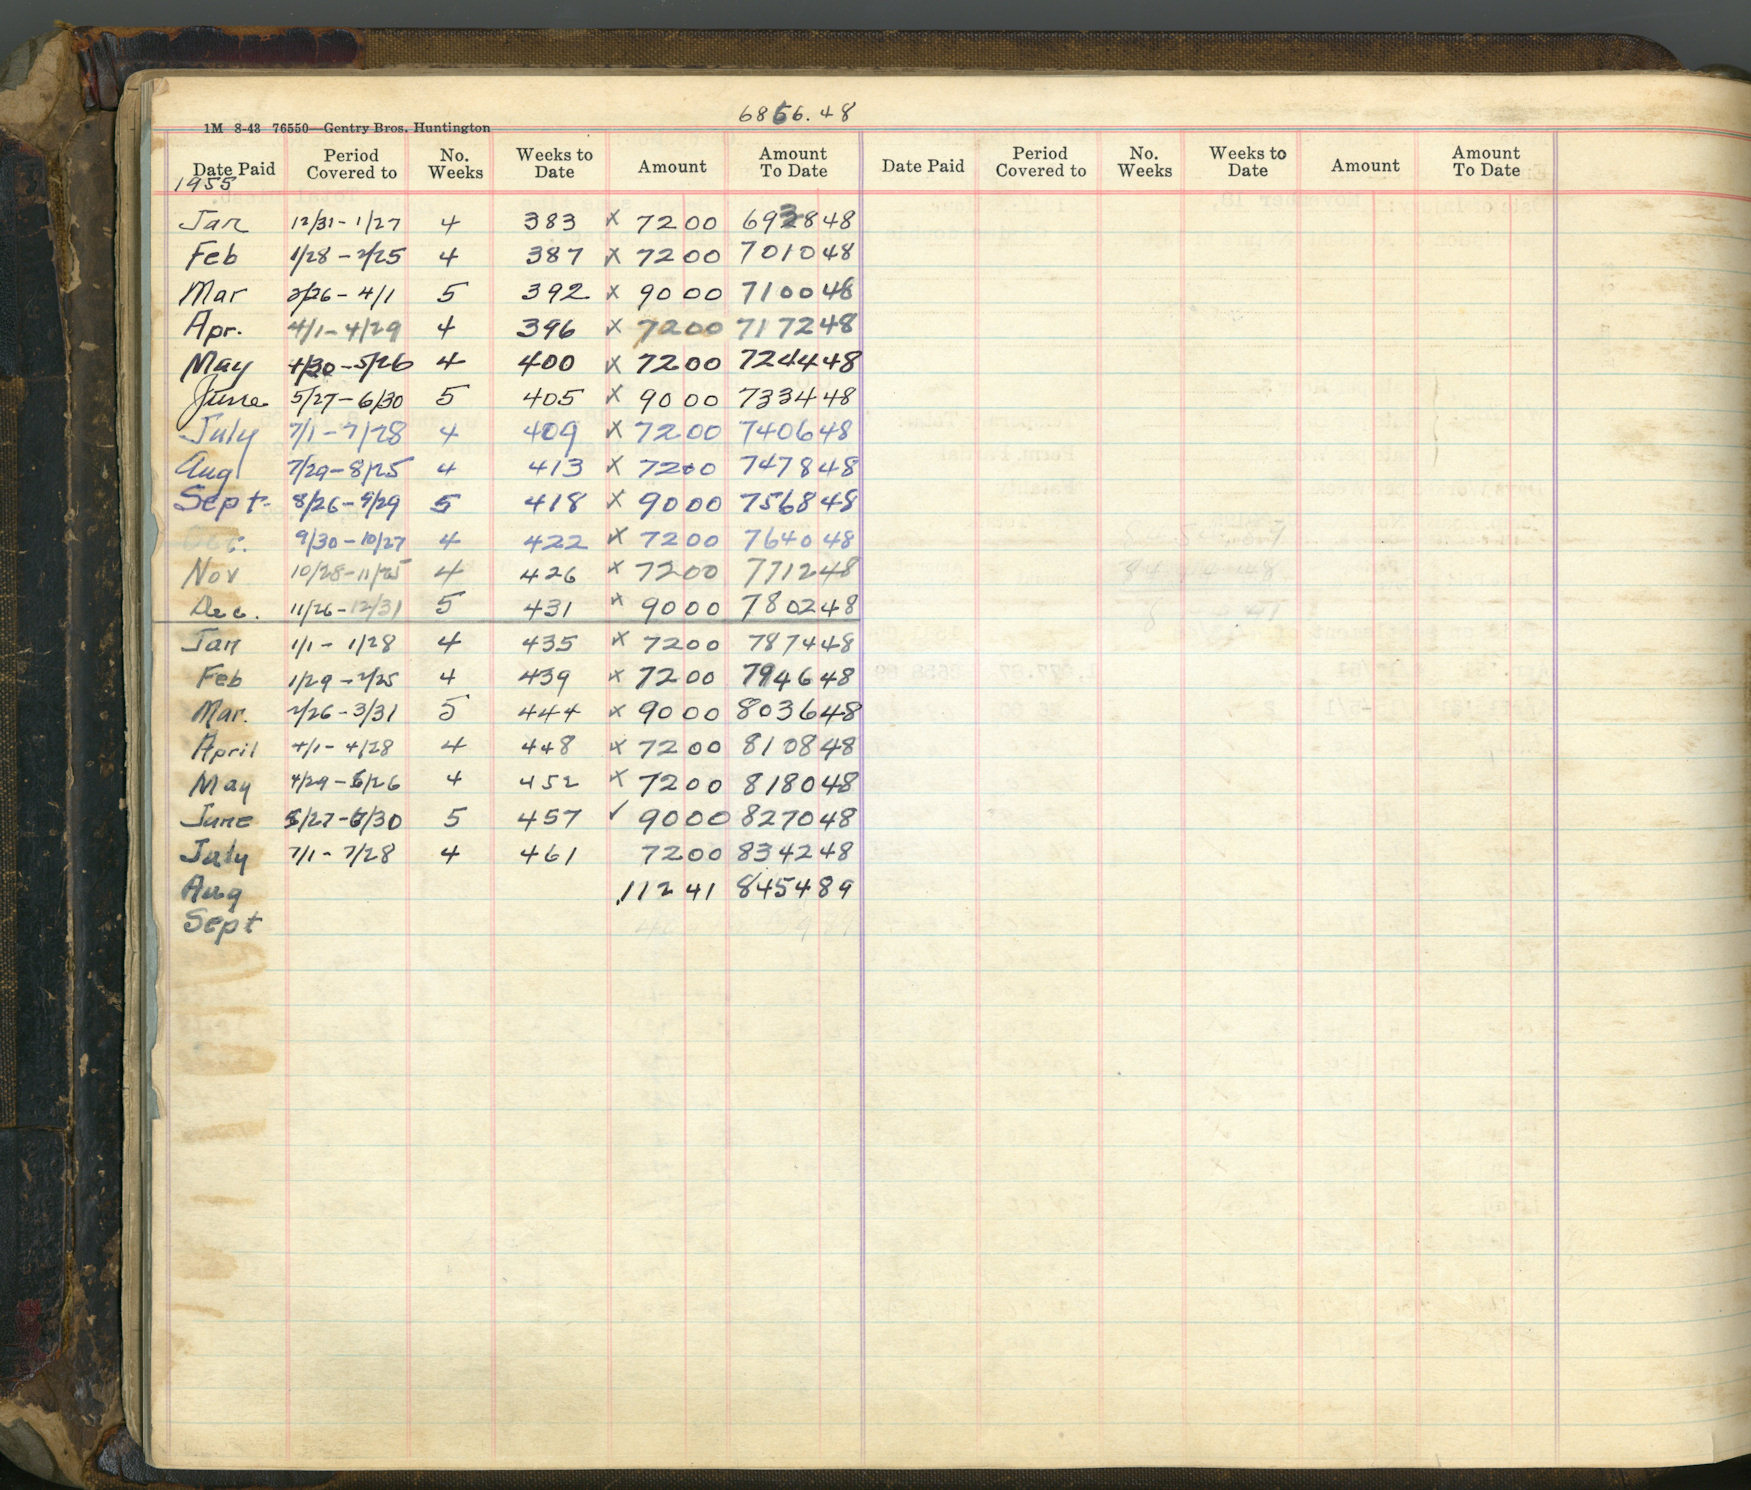 6856.48
1M 8-43 76550—Gentry Bros. Huntington
Date Paid Period Covered to No. Weeks Weeks to Date Amount Amount To Date Date Paid Period Covered to No. Weeks Weeks to Date Amount Amount To Date
1955
Jan 12/31 - 1/27 4 383 x 72 00 6928 48
Feb 1/28 - 2/25 4 387 x 72 00 7010 48
Mar 2/26 - 4/1 5 392 x 90 00 7100 48
Apr. 4/1 - 4/29 4 396 x 72 00 7172 48
May 4/30 - 5/26 4 400 x 72 00 7244 48
June 5/27 - 6/30 5 405 x 90 00 7334 48
July 7/1 - 7/28 4 409 x 72 00 7406 48
Aug 7/29 - 8/25 4 413 x 72 00 7478 48
Sept. 8/26 - 9/29 5 418 x 90 00 7568 48
Oct. 9/30 - 10/27 4 422 x 72 00 7640 48
Nov 10/28 - 11/25 4 426 x 72 00 7712 48
Dec. 11/26 - 12/31 5 431 x 90 00 7802 48
Jan 1/1 - 1/28 4 435 x 72 00 7874 48
Feb 1/29 - 2/25 4 439 x 72 00 7946 48
Mar. 2/26 - 3/31 5 444 x 90 00 8036 48
April 4/1 - 4/28 4 448 x 72 00 8108 48
May 4/29 - 5/26 4 452 x 72 00 8180 48
June 5/27 - 6/30 5 457 ✓ 90 00 8270 48
July 7/1 - 7/28 4 461 72 00 8342 48
Aug 112 41 8454 89
Sept